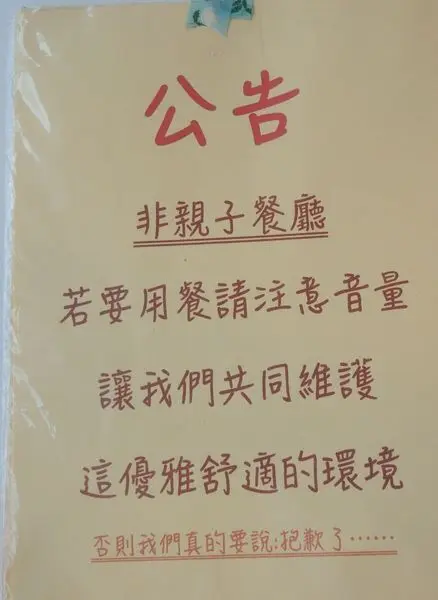 公告
非親子餐廳
若要用餐請注意音量
讓我們共同維護
這優雅舒適的環境
否則我們真的要說:抱歉了⋯⋯